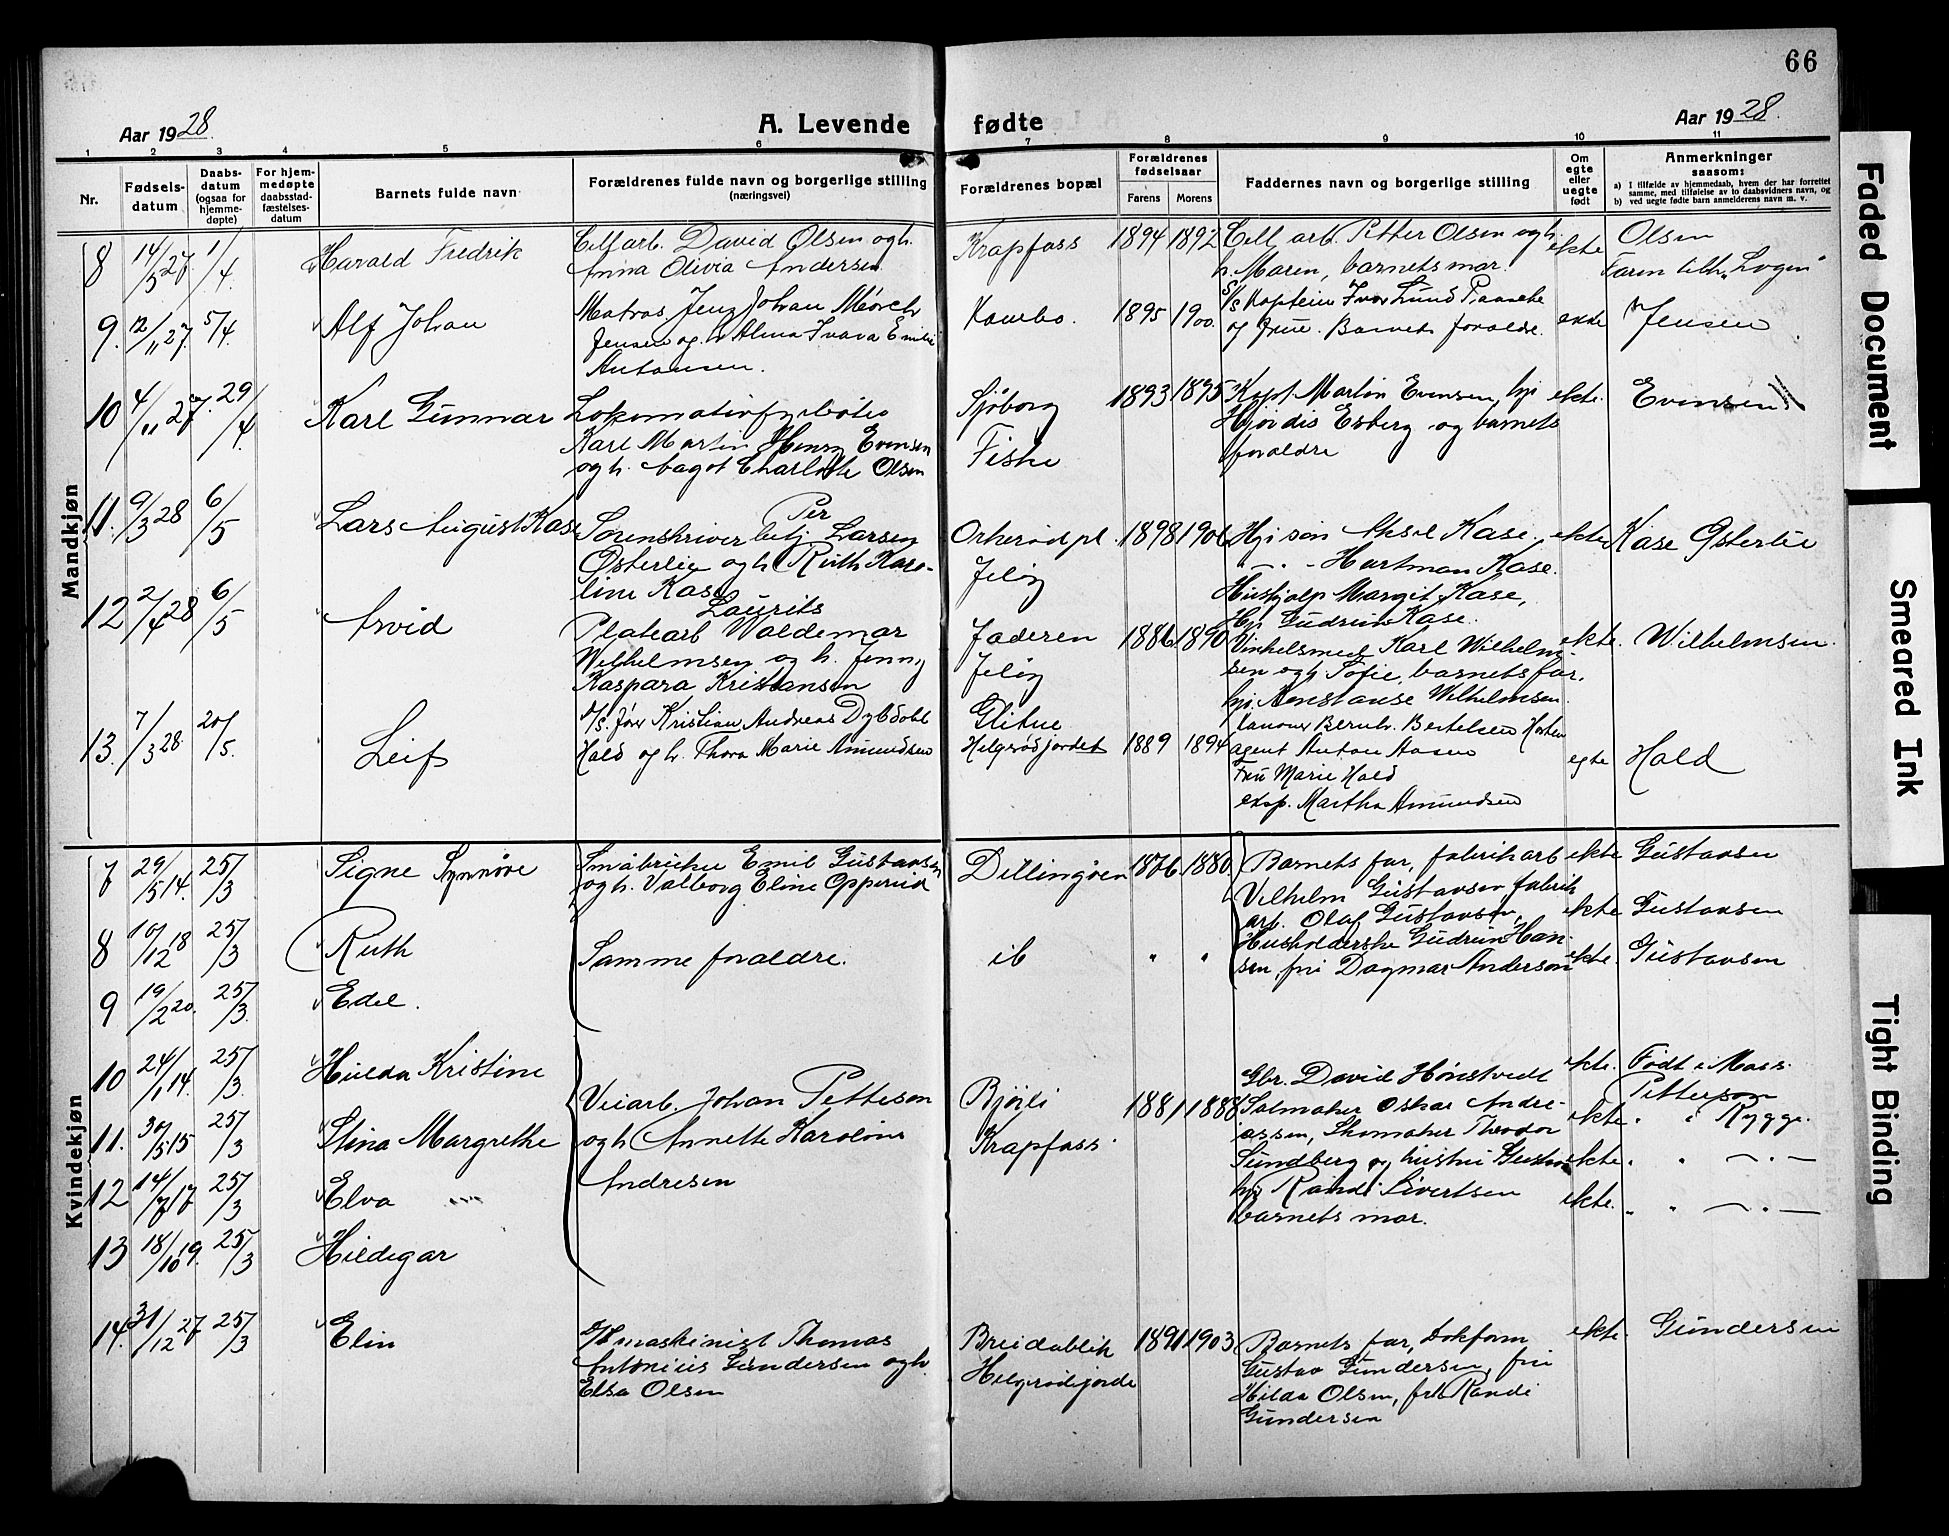 66
Aar 1928.
A. Levende fødte
Aar 1928.
1 2 3 4 5 6 7 8 9 10 11
Nr.
Fødsels-
datum
Daabs-
datum
(ogsaa for
hjemme-
døpte)
For hjem-
medøpte
daabsstad-
fæstelses-
datum
Barnets fulde navn
Forældrenes fulde navn og borgerlige stilling
(næringsvei)
Forældrenes bopæl
Forældrenes
fødselsaar
Farens Morens
Faddernes navn og borgerlige stilling
Om
egte
eller
uegte
født
Anmerkninger
saasom:
a) I tilfælde av hjemmedaab, hvem der har forrettet
samme, med tilføielse av to daabsvidners navn, og
b) ved uegte fødte barn anmelderens navn m. v.
Mandkjøn
8 14/5 27. 1/4. Harald Fredrik
Cell arb. David Olsen og h.
Anna Olivia Andersen
Krapfoss 1894 1892
Cell arb. Petter Olsen og h.
h. Maren, barnets mor.
ekte
Olsen
Faren tilh. "Logen"
9. 12/11 27. 5/4. Alf Johan
Matros. Jens Johan Mörch
Jensen og h. Alma
Antonsen.
Kambo. 1895 1900.
S/S Kaptein Ivar Lund
og frue. Barnets foraldre.
Jensen
10 4/11 27. 29/4 Karl Gunnar
Lokomotivfyrböter
Karl Martin Henry Evensen
og h. Aagot Charlotte Olsen
Sjöborg
Fiske
1893 1895
Kapt. Martin Evensen, hj
Hjördis Esberg og barnets
foraldre
ekte.
Evensen
11. 9/3 28 6/5 Lars August Kase
Per
Sorenskriver betj. Larsen
Österlie og h. Ruth Karo-
line Kase
Orkerödpl.
Jelöy
1898 1906
Hj. sön Aksel Kase.
- . - Hartman Kase.
Hushjelp Margit Kase,
Hj. Gudrun Kase.
ekte
Kase Österlie
12 2/4 28 6/5 Arvid
Laurits
Platearb Waldemar
Wilhelmsen og h. Jenny
Kaspara Kristiansen
Jaderen
Jelöy
1886 1890
Karl Wilhelm-
sen og h. Sofie, barnets far,
hj. Konstanse Wilhelmsen.
ekte.
Wilhelmsen.
13. 7/3 28. 20/5. Leif
Kristian Andreas Dybdahl
Hald og h. Thora Marie Amundsen
Glitne
Helgerödjordet 1889 1894
Bernh. Bertelsen Horten
agent Anton Aasen
Fru Marie Hald
eksp. Martha Amundsen
egte
Hald
Kvindekjøn
7 29/5 14. 25/3 Signe Synnöve
Småbruker Emil Gustavsen
og h. Valborg Eline Opperud
Dillingöen 1876. 1880
Barnets far, fabrikarb
Vilhelm Gustavsen fabrik
arb. Olaf Gustavsen,
Husholderske Gudrun Han-
sen, fru Dagmar Anderson
ekte Gustavsen
8 10/12 18 25/3 Ruth
Samme foraldre.
ib " "
ekte Gustavsen
9 19/2 20. 25/3. Edel.
ekte. Gustavsen
10 24/1 14. 25/3. Hulda Kristine
Veiarb. Johan Petterson
og h Annette Karoline
Andresen
Björli
Krapfoss
1881 1888
Gbr. David Hönstvedt
Salmaker Oskar Andre-
assen, Skomaker Theodor
Sundberg og hustru
hj. Randi Sivertsen
barnets mor.
ekte. Född i Moss.
Petterson
11. 30/5 15 25/3 Stina Margrethe
ekte " " Rygge.
12 14/7 17 25/3 Elva
ekte " " - . -
13 18/10 19. 25/3 Hildegar
ekte. " " - . -
14. 31/12 27 25/3 Elin
maskinist Thomas
Antonius Gundersen og h.
Elsa Olsen
Breidablik
Helgerödjorde
1891 1903
Barnets far, Dokform
Gustav Gundersen, fru
Hilda Olsen, frk Randi
Gundersen
ekte. Gundersen
Faded Document
Smeared Ink
Tight Binding